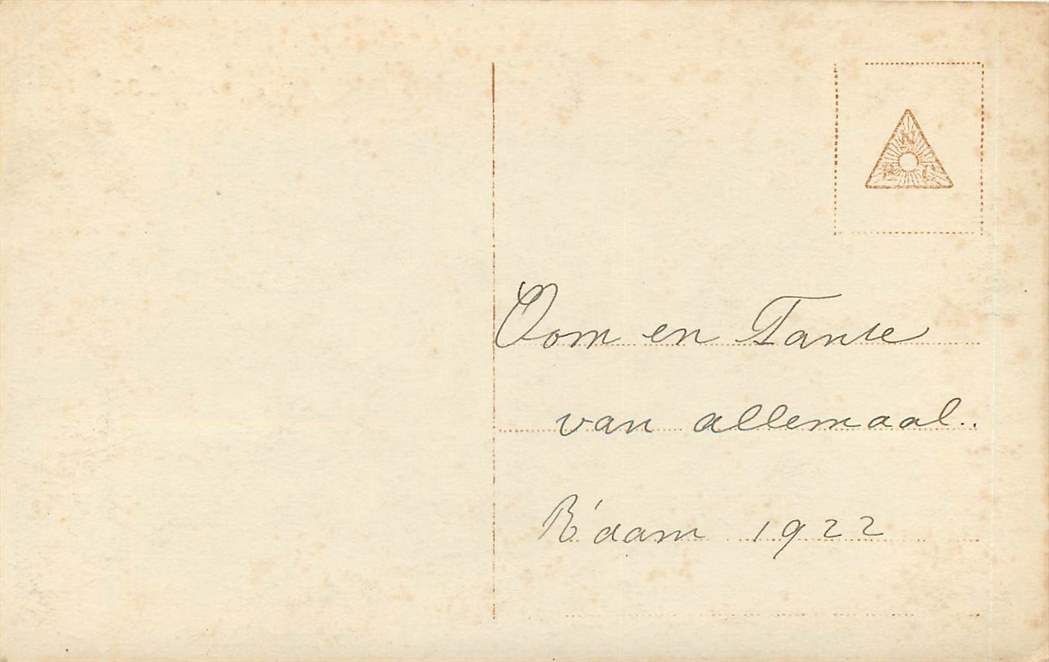 Oom en Tante
van allemaal.
R'dam 1922